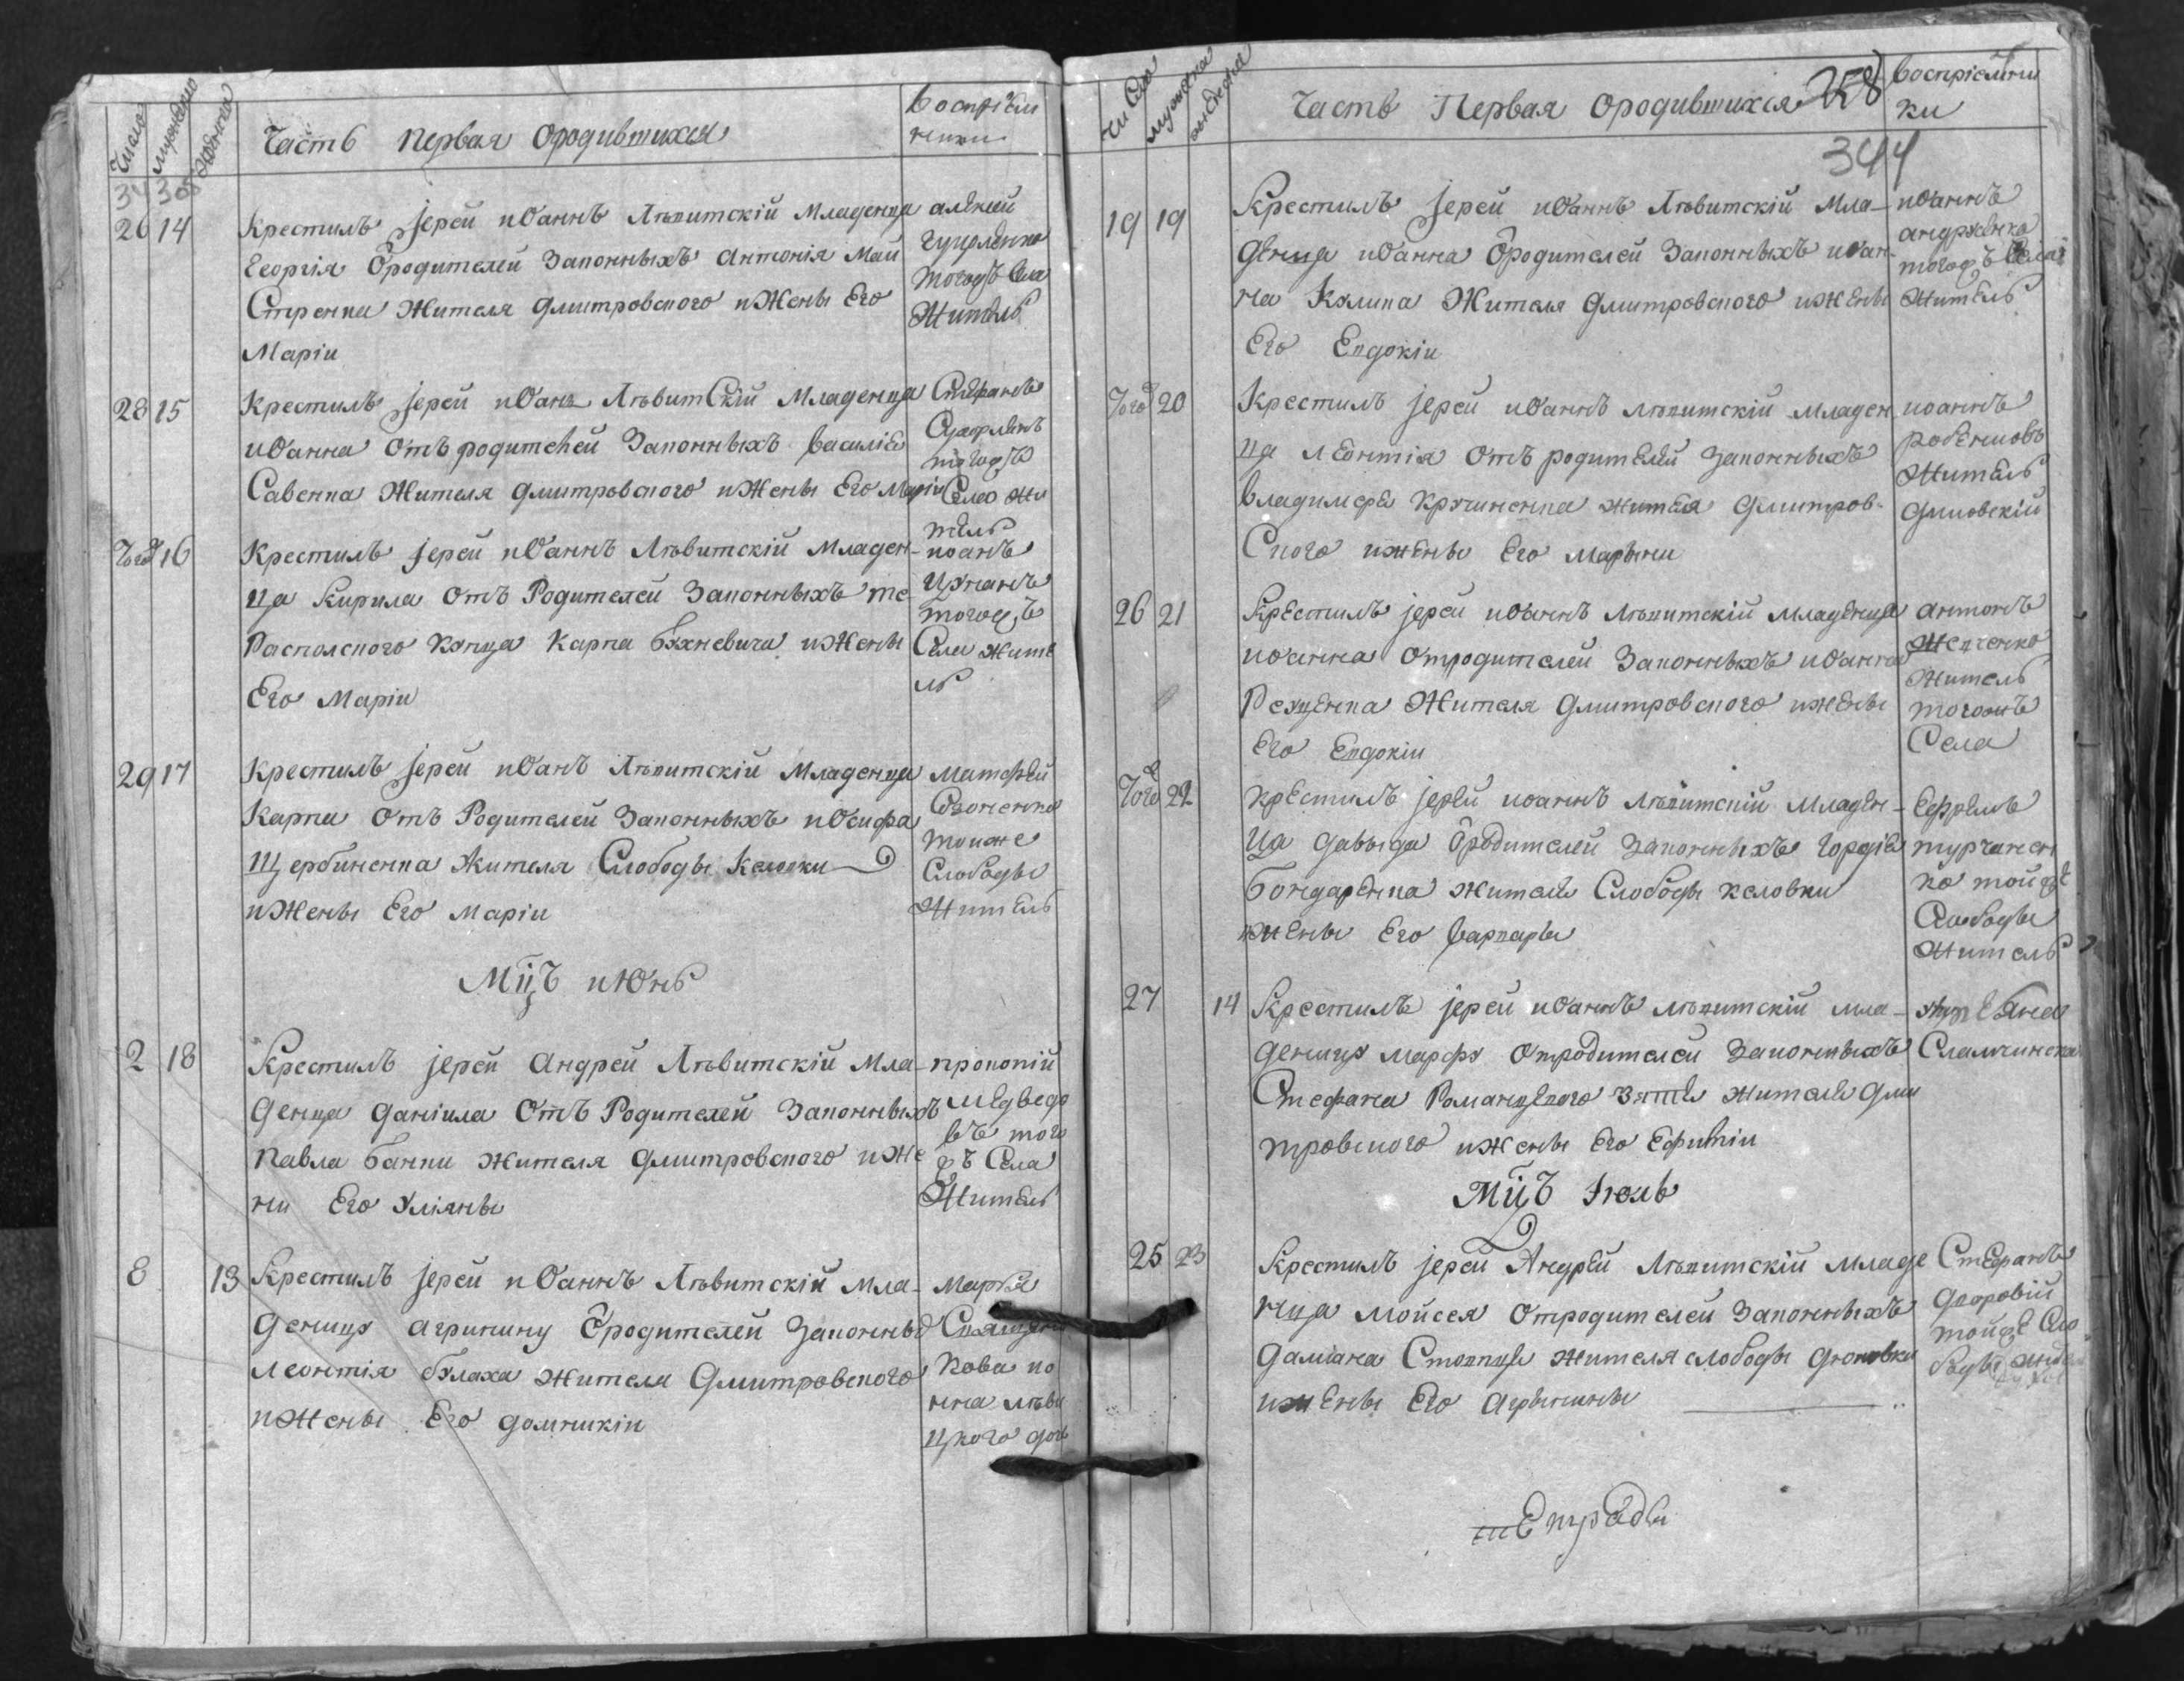 Число
мужеска
женска
Часть первая ородившихся
Воспріем
ники
26 14
Крестилъ јерей иоаннъ Лѣвитскій Младенца
Георгія Ѿродителей Законныхъ Антонія Май
Стренка Жителя Дмитровского иЖены Его
Маріи
алексій
тогожъ Села
Житель
28 15
Крестилъ јерей иоанъ Лѣвитскій Младенца
иоанна отъ родителей Законныхъ Василіа
Савенка Жителя Дмитровского иЖены Его Маріи
Стефанъ
тогожъ
Села жи
тель
Тогож 16
Крестилъ јерей иоаннъ Лѣвитскій Младен-
ца Кирила отъ Родителей Законныхъ те
распольского Купца Карпа Бухневича иЖены
Его Маріи
иоанъ
Цуканъ
тогожъ
Села жите
ль
29 17
Крестилъ јерей иоанъ Лѣвитскій Младенца
Карпа отъ Родителей Законныхъ иосифа
Щербиненка Жителя Слободы Каловки
иЖены Его Маріи
матфей
тоиже
Слободы
Житель
Мцъ иЮнь
2 18
Крестилъ јерей Андрей Лѣвитскій Мла-
денца Даніила отъ Родителей Законныхъ
Павла Банки Жителя Дмитровского иЖе
ни Его Уліяны
прокопій
медведо
въ того
жъ Села
Житель
8 13
Крестилъ јерей иоаннъ Лѣвитскій Мла-
денцу агрипину Ѿродителей Законны
Леонтія булаха Жителя Дмитровского
иЖены Его домникіи
Марѳа
Священи
кова ио
нна лѣви
цкого дочь
Число
мужеска
женска
Часть Первая ородившихся
258
Воспріемни
ки
344
19 19
Крестилъ јерей иоаннъ Лѣвитскій Мла-
денца иоанна Ѿродителей Законныхъ иоан
на Кулика Жителя Дмитровского иЖены
Его Евдокіи
иоаннъ
андрусенко
тогожъ Села
Житель
Тогож 20
Крестилъ јерей иоаннъ лѣвитскій младен
ца леонтія отъ родителей законныхъ
Владимера Кручиненка жителя Дмитров-
Ского иЖены Его марыни
иоаннъ
Житель
26 21
Крестилъ јерей иоаннъ Лѣвитскій младенца
иоанна отродителей Законныхъ иоанна
Резценка Жителя Дмитровского иЖены
Его Евдокіи
антонъ
Житель
тогожъ
Села
Тогож 22
Крестилъ јерей иоаннъ лѣвитскій младен-
ца давыда Ѿродителей Законныхъ гордія
Бондаренка жителя Слободы каловки
жены Его варвары
Ефремъ
турчанен
ко той же
Слободы
Житель
27 14
Крестилъ јерей иоаннъ лѣвитскій мла-
денцу марфу отродителей Законныхъ
Стефана Романцевого зятя жителя Дми
тровского иЖены Его Ефиміи
Мцъ Іюль
25 23
Крестилъ јерей Андрей Лѣвитскій младе
нца мойсея отродителей Законныхъ
даміана Жителя слободы
иЖены Его агрыпины
Стефанъ
той же Сло
боды